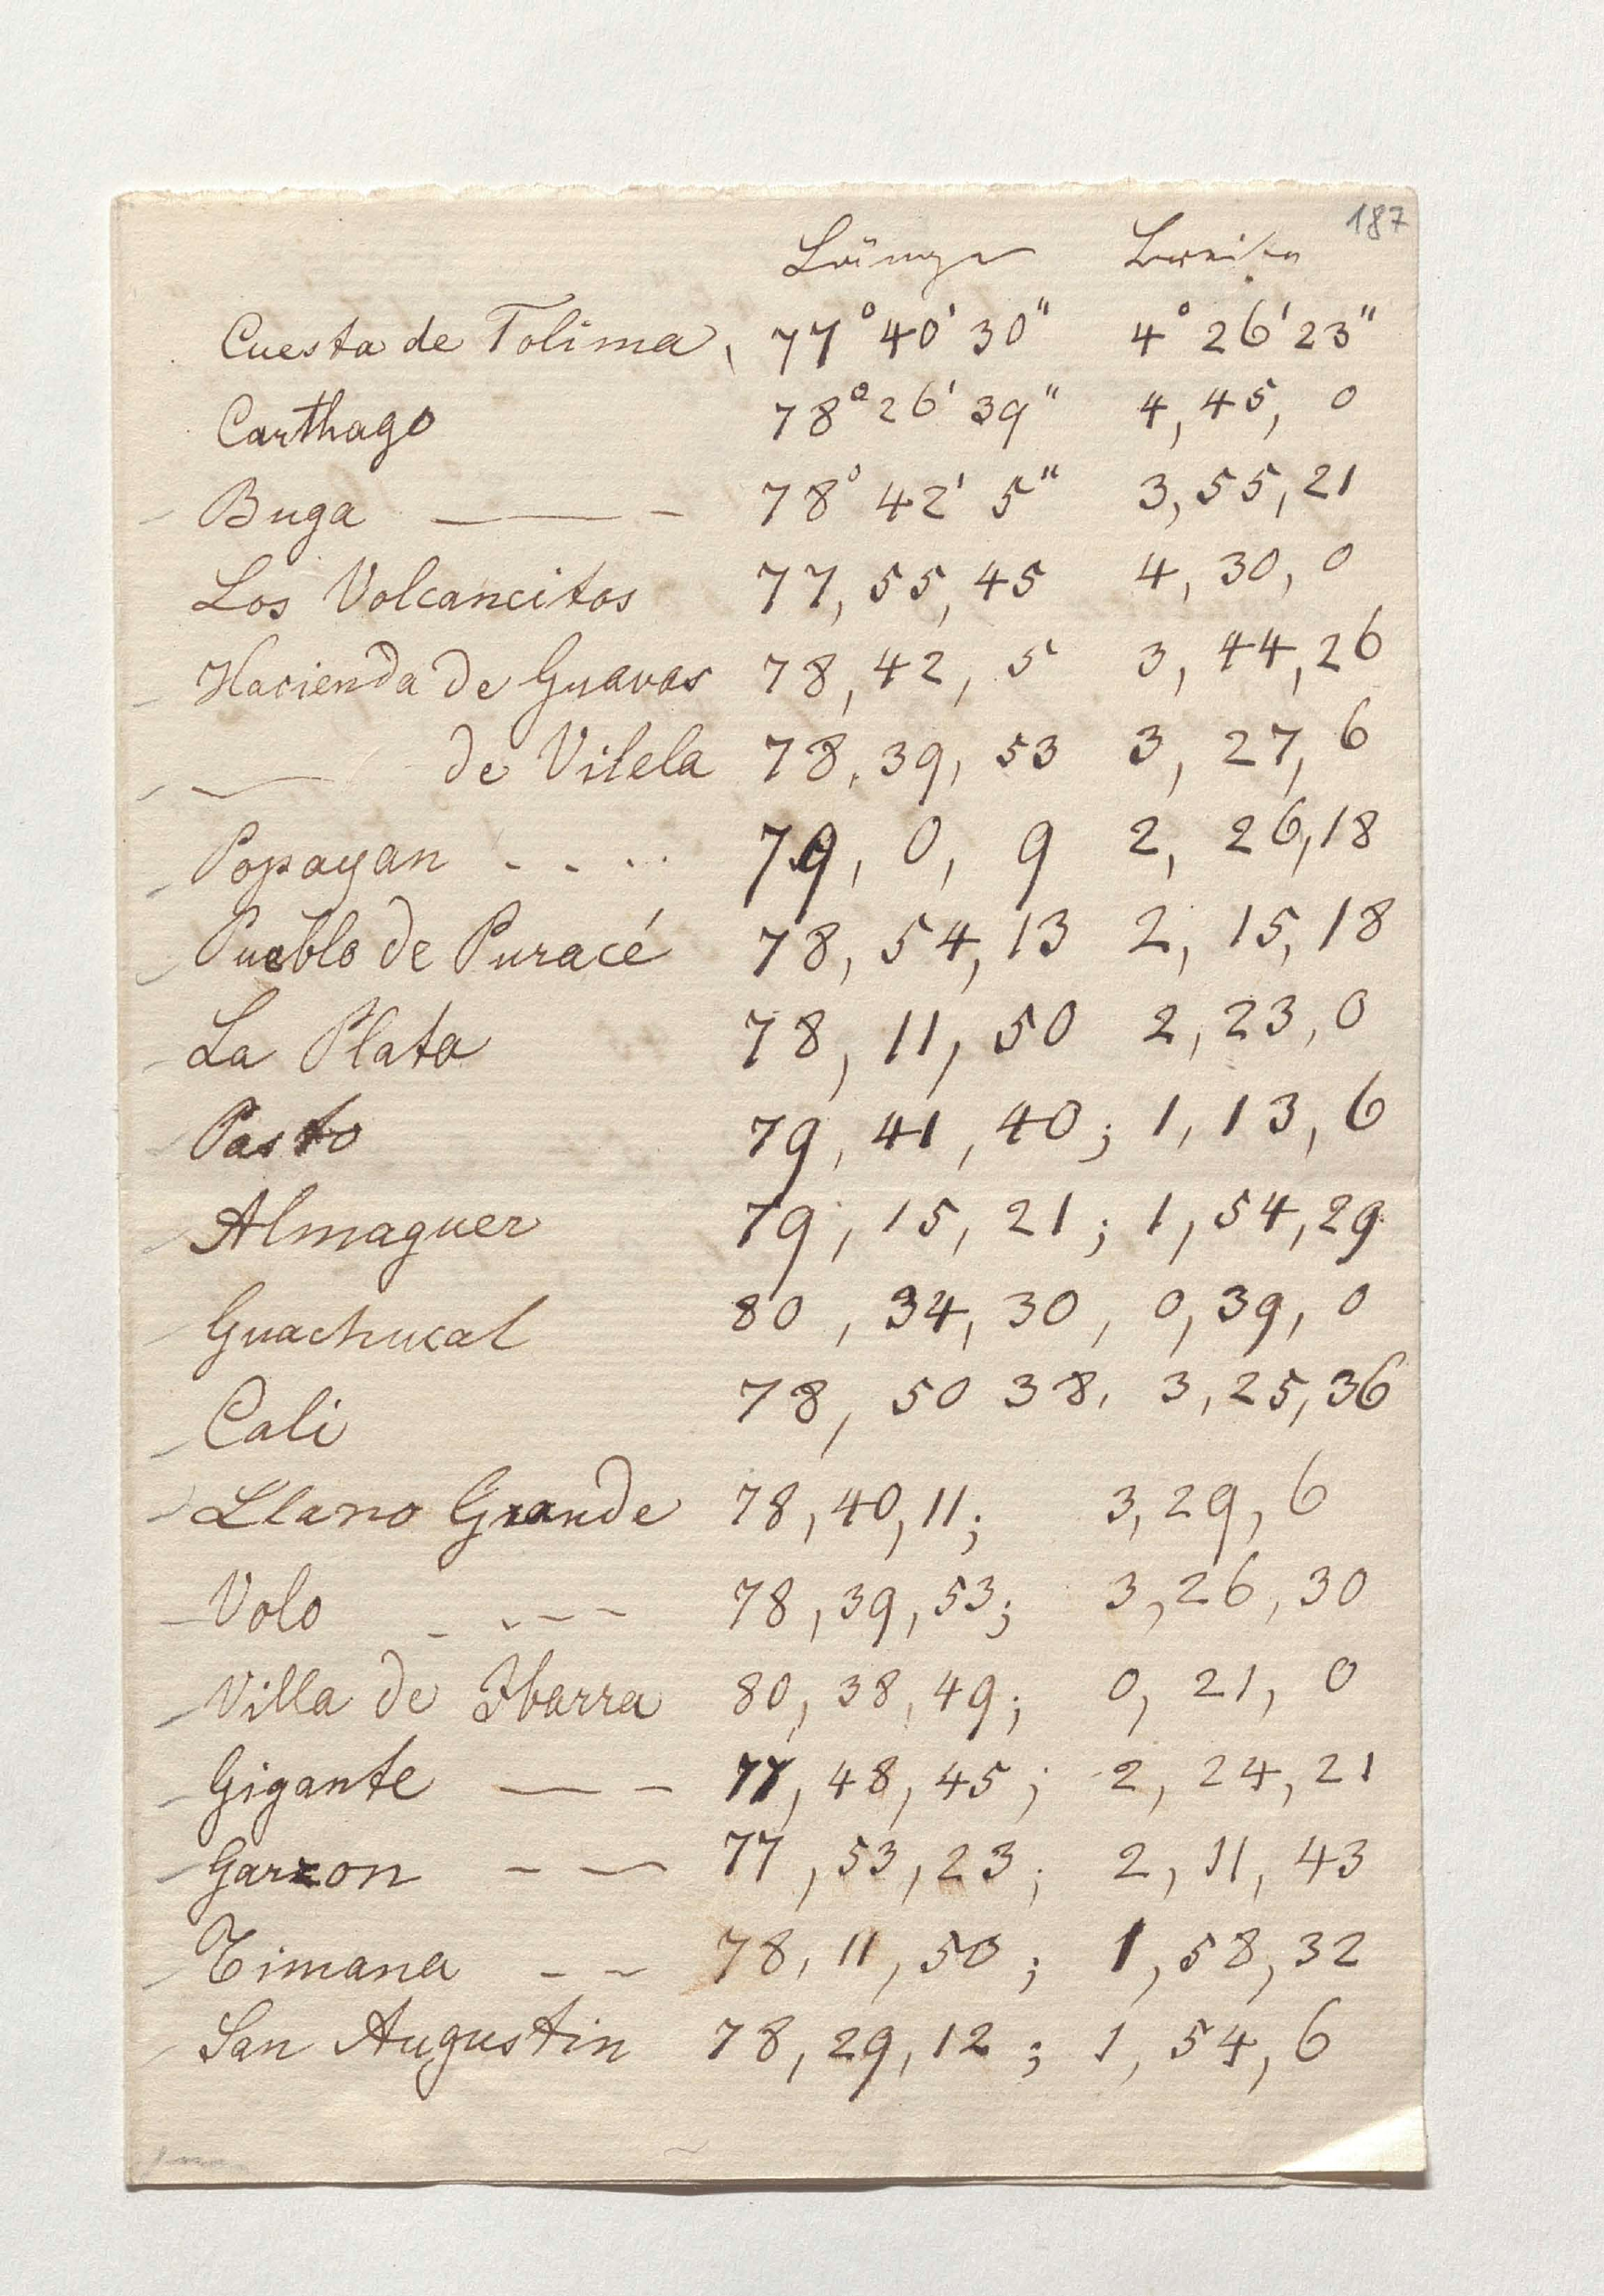 187
Länge Breite
Cuesta de Tolima, 77° 40' 30" 4° 26' 23"
Carthago 78° 26' 39" 4, 45, 0
Buga — - 78° 42' 5" 3, 55, 21
Los Volcancitos 77, 55, 45 4, 30, 0
Hacienda de Guavas 78, 42, 5 3, 44, 26
— de Vilela 78, 39, 53 3, 27, 6
Popayan - - .. 79, 0, 9 2, 26, 18
Pueblo de Puracé 78, 54, 13 2, 15, 18
La Plata 78, 11, 50 2, 23, 0
Pasto 79, 41, 40; 1, 13, 6
Almaguer 79, 15, 21; 1, 54, 29
Guachucal 80, 34, 30, 0, 39, 0
Cali 78, 50 38. 3, 25, 36
Llano Grande 78, 40, 11; 3, 29, 6
Volo - - - - 78, 39, 53; 3, 26, 30
Villa de Ibarra 80, 38, 49; 0, 21, 0
Gigante — - 77, 48, 45; 2, 24, 21
Garzon - — 77, 53, 23; 2, 11, 43
Timana - - 78, 11, 50; 1, 58, 32
San Augustin 78, 29, 12; 1, 54, 6